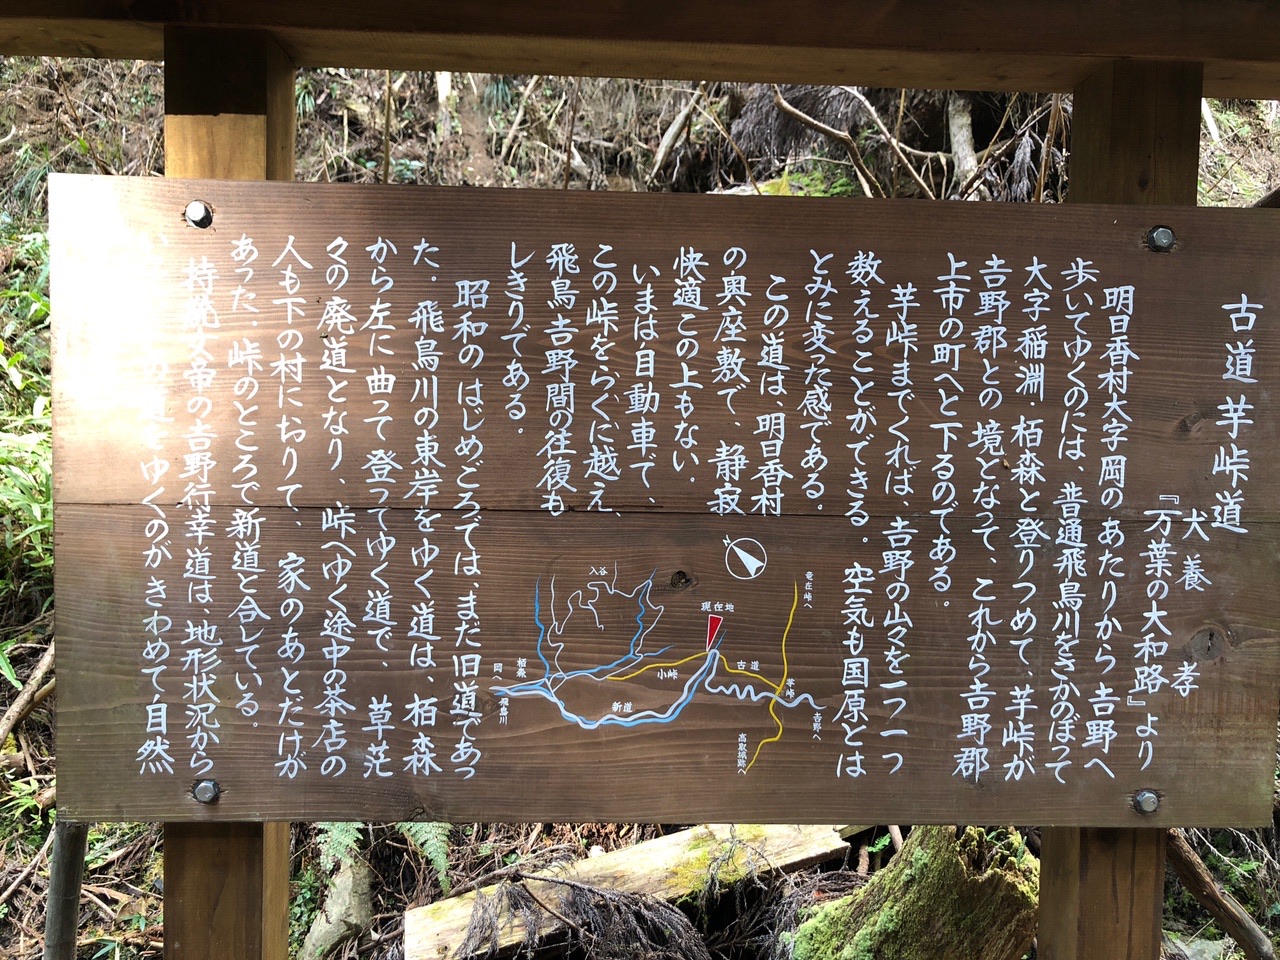 古道芋峠道
犬養 孝
『万葉の大和路』より
明日香村大字岡のあたりから吉野へ
歩いてゆくのには、普通飛鳥川をさかのぼって
大字稲淵・栢森と登りつめて、芋峠が
吉野郡との境となって、これから吉野郡
上市の町へと下るのである。
芋峠までくれば、吉野の山々を一つ一つ
数えることができる。空気も国原とは
とみに変った感である。
この道は、明日香村
の奥座敷で、静寂
快適この上もない。
いまは自動車で、
この峠をらくに越え、
飛鳥吉野間の往復も
しきりである。
昭和のはじめごろでは、まだ旧道であっ
た。飛鳥川の東岸をゆく道は、栢森
から左に曲って登ってゆく道で、草茫
々の廃道となり、峠へゆく途中の茶店の
人も下の村におりて、家のあとだけが
あった。峠のところで新道と合している。
持統女帝の吉野行幸道は、地形状況から
道をゆくのがきわめて自然
入谷
現在地
竜在峠へ
栢森
岡へ
飛鳥川
小峠
古道
新道
芋峠
吉野へ
高取城跡へ
N